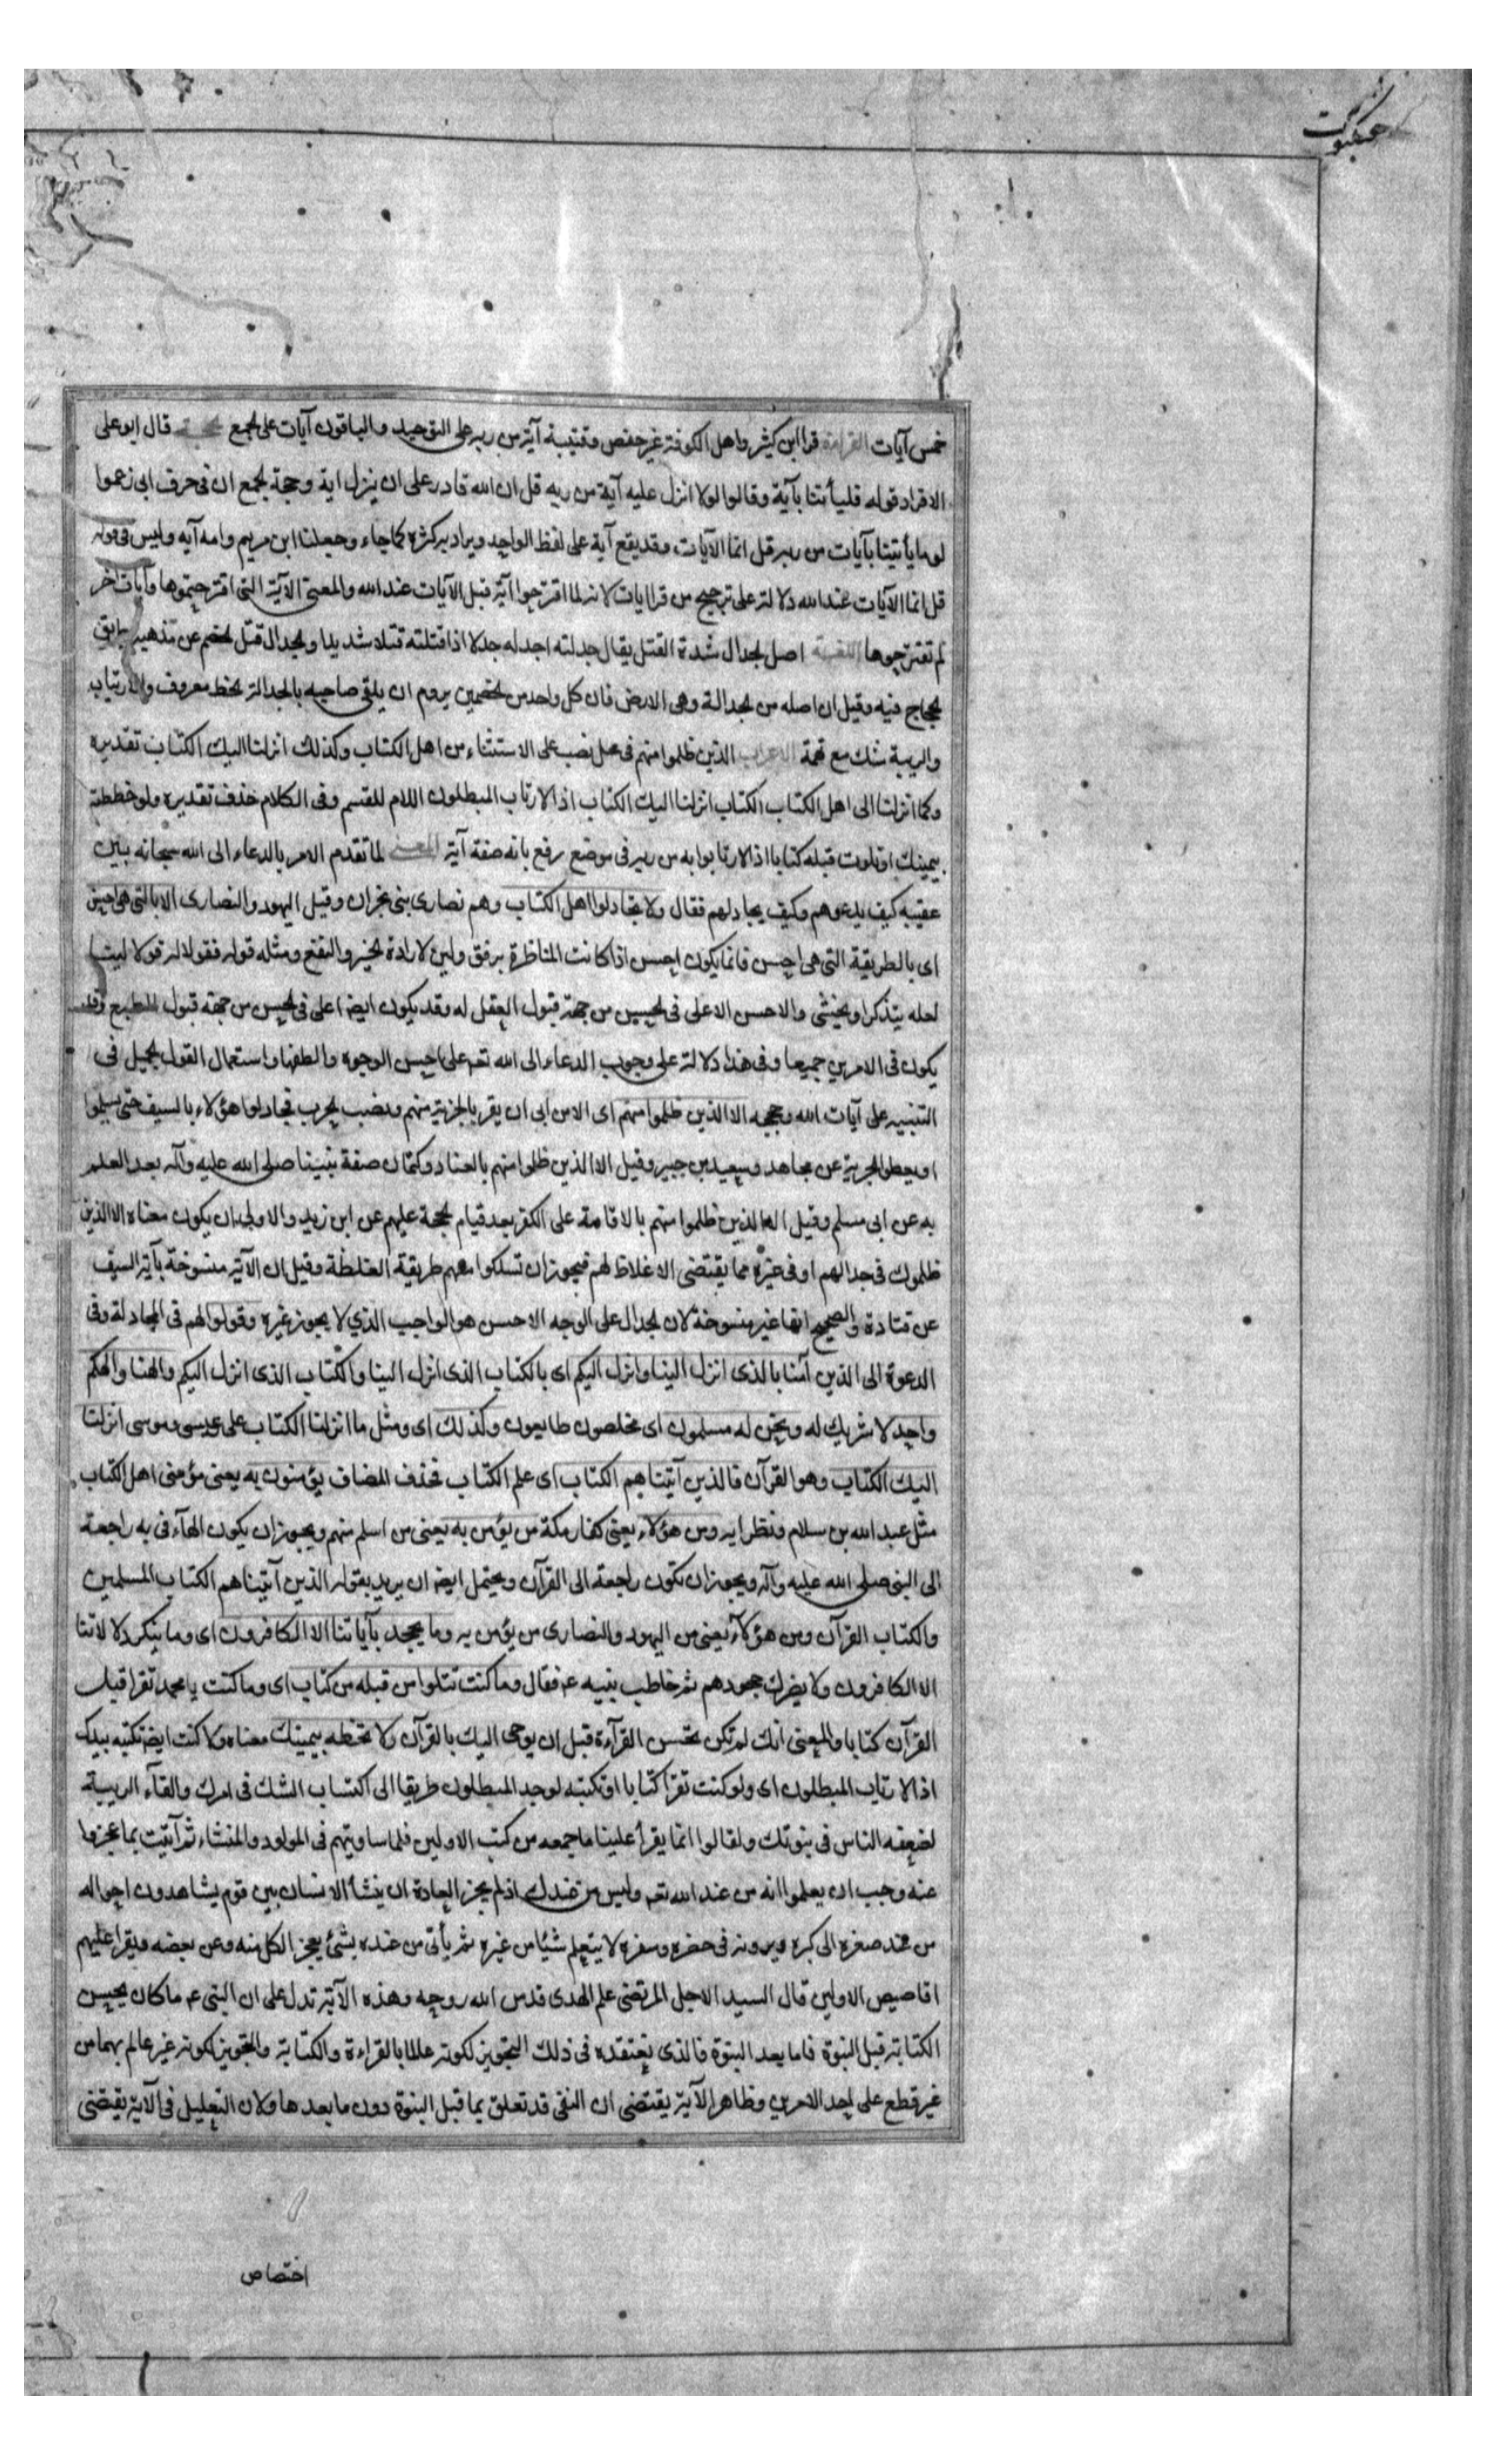 عنكبوت
خمس آيات القراءة قرا ابن كثير واهل الكوفة غير حفص وقتيبة آية من ربه على التوحيد والباقون آيات على الجمع الحجة قال ابو على
الافراد قوله فليأتنا بآية وقالوا لولا انزل عليه آية من ربه قل ان الله قادر على ان ينزل اية وحجة الجمع ان فى حرف ابى زعموا
لو ما يأتينا بآيات من ربه قل انما الآيات وقد يقع آية على لفظ الواحد ويراد به كثرة كما جاء وجعلنا ابن مريم وامه آيه وليس فى قوله
قل انما الآيات عند الله دلالة على ترجيح من قرا ايات لانه لما اقترحوا آية قيل الآيات عند الله والمعنى الآية التى اقترحتموها وآيات اخر
لم تقترحوها اللغة اصل الجدال شدة الفتل يقال جدلته اجدله جدلا اذا فتلته فتلا شديدا والجدال فتل الخصم عن مذهبه بطريق
الحجاج فيه وقيل ان اصله من الجدالة وهى الارض فان كل واحد من الخصمين يروم ان يلقى صاحبه بالجدالة الخط معروف والارتياب
والريبة شك مع تهمة الاعراب الذين ظلموا منهم فى محل نصب على الاستثناء من اهل الكتاب وكذلك انزلنا اليك الكتاب تقديره
وكما انزلنا الى اهل الكتاب الكتاب انزلنا اليك الكتاب اذا لارتاب المبطلون اللام للقسم وفى الكلام حذف تقديره ولو خططته
بيمينك او تلوت قبله كتابا اذا لارتابوا به من ربه فى موضع رفع بانه صفة آية المعنى لما تقدم الامر بالدعاء الى الله سبحانه بين
عقيبه كيف يدعوهم وكيف يجادلهم فقال ولا تجادلوا اهل الكتاب وهم نصارى بنى نجران وقيل اليهود والنصارى الا بالتى هى احسن
اى بالطريقة التى هى احسن فانما يكون احسن اذا كانت المناظرة برفق ولين لارادة الخير والنفع ومثله قوله فقولا له قولا لينا
لعله يتذكر او يخشى والاحسن الاعلى فى الحسن من جهة قبول العقل له وقد يكون ايضا اعلى فى الحسن من جهة قبول الطبع وقد
يكون فى الامرين جميعا وفى هذا دلالة على وجوب الدعاء الى الله تعم على احسن الوجوه والطفها واستعمال القول الجميل فى
التنبيه على آيات الله وحججه الا الذين ظلموا منهم اى الا من ابى ان يقر بالجزية منهم ونصب الحرب فجادلوا هؤلاء بالسيف حتى يسلموا
او يعطوا الجزية عن مجاهد وسعيد بن جبير وقيل الا الذين ظلموا منهم بالعناد وكتمان صفة نبينا صلى الله عليه وآله بعد العلم
به عن ابى مسلم وقيل الا الذين ظلموا منهم بالاقامة على الكفر بعد قيام الحجة عليهم عن ابن زيد والاولى ان يكون معناه الا الذين
ظلموك فى جدالهم او فى غيره مما يقتضى الاغلاظ لهم فيجوز ان تسلكوا معهم طريقة الغلظة وقيل ان الآية منسوخة بآية السيف
عن قتادة والصحيح انها غير منسوخة لان الجدال على الوجه الاحسن هو الواجب الذي لا يجوز غيره وقولوا لهم فى المجادلة وفى
الدعوة الى الدين آمنا بالذى انزل الينا وانزل اليكم اى بالكتاب الذى انزل الينا والكتاب الذى انزل اليكم والهنا والهكم
واحد لا شريك له ونحن له مسلمون اى مخلصون طايعون وكذلك اى ومثل ما انزلنا الكتاب على عيسى وموسى انزلنا
اليك الكتاب وهو القرآن فالذين آتيناهم الكتاب اى علم الكتاب فحذف المضاف يؤمنون به يعنى مؤمنى اهل الكتاب
مثل عبد الله بن سلام ونظرايه ومن هؤلاء يعنى كفار مكة من يؤمن به يعنى من اسلم منهم ويجوز ان يكون الهآء فى به راجعة
الى النبى صلى الله عليه وآله ويجوز ان تكون راجعة الى القرآن ويحتمل ايضه ان يريد بقوله الذين آتيناهم الكتاب المسلمين
والكتاب القرآن ومن هؤلآء يعنى من اليهود والنصارى من يؤمن به وما يجحد بآياتنا الا الكافرون اى وما ينكر دلالاتنا
الا الكافرون ولا يضرك جحودهم ثم خاطب نبيه عم فقال وما كنت تتلوا من قبله من كتاب اى وما كنت يا محمد تقرا قبل
القرآن كتابا والمعنى انك لم تكن تحسن القرآءة قبل ان يوحى اليك بالقرآن ولا تخطه بيمينك معناه ولا كنت ايضه تكتبه بيدك
اذا لارتاب المبطلون اى ولو كنت تقرا كتابا او تكتبه لوجد المبطلون طريقا الى اكتساب الشك فى امرك والقآء الريبة
لضعفه الناس فى نبوتك ولقالوا انما يقرأ علينا ما جمعه من كتب الاولين فلما ساويتهم فى المولد والمنشاء ثم آتيت بما عجزوا
عنه وجب ان يعلموا انه من عند الله تعم وليس من عندك اذ لم يجز العادة ان ينشأ الانسان بين قوم يشاهدون احواله
من عند صغره الى كبره ويرونه فى حضره وسفره لا يتعلم شيئا من غيره ثم يأتى من عنده بشئ يعجز الكل منه وعن بعضه ويقرا عليهم
اقاصيص الاولين قال السيد الاجل المرتضى علم الهدى قدس الله روحه وهذه الآية تدل على ان النبى عم ما كان يحسن
الكتابة قبل النبوة فاما بعد النبوة فالذى يعتقده فى ذلك التجويز لكونه عالما بالقراءة والكتابة والتجويز لكونه غير عالم بهما من
غير قطع على احد الامرين وظاهر الآية يقتضى ان النفى قد تعلق بما قبل النبوة دون ما بعدها ولان التعليل فى الآية يقتضى
اختصاص